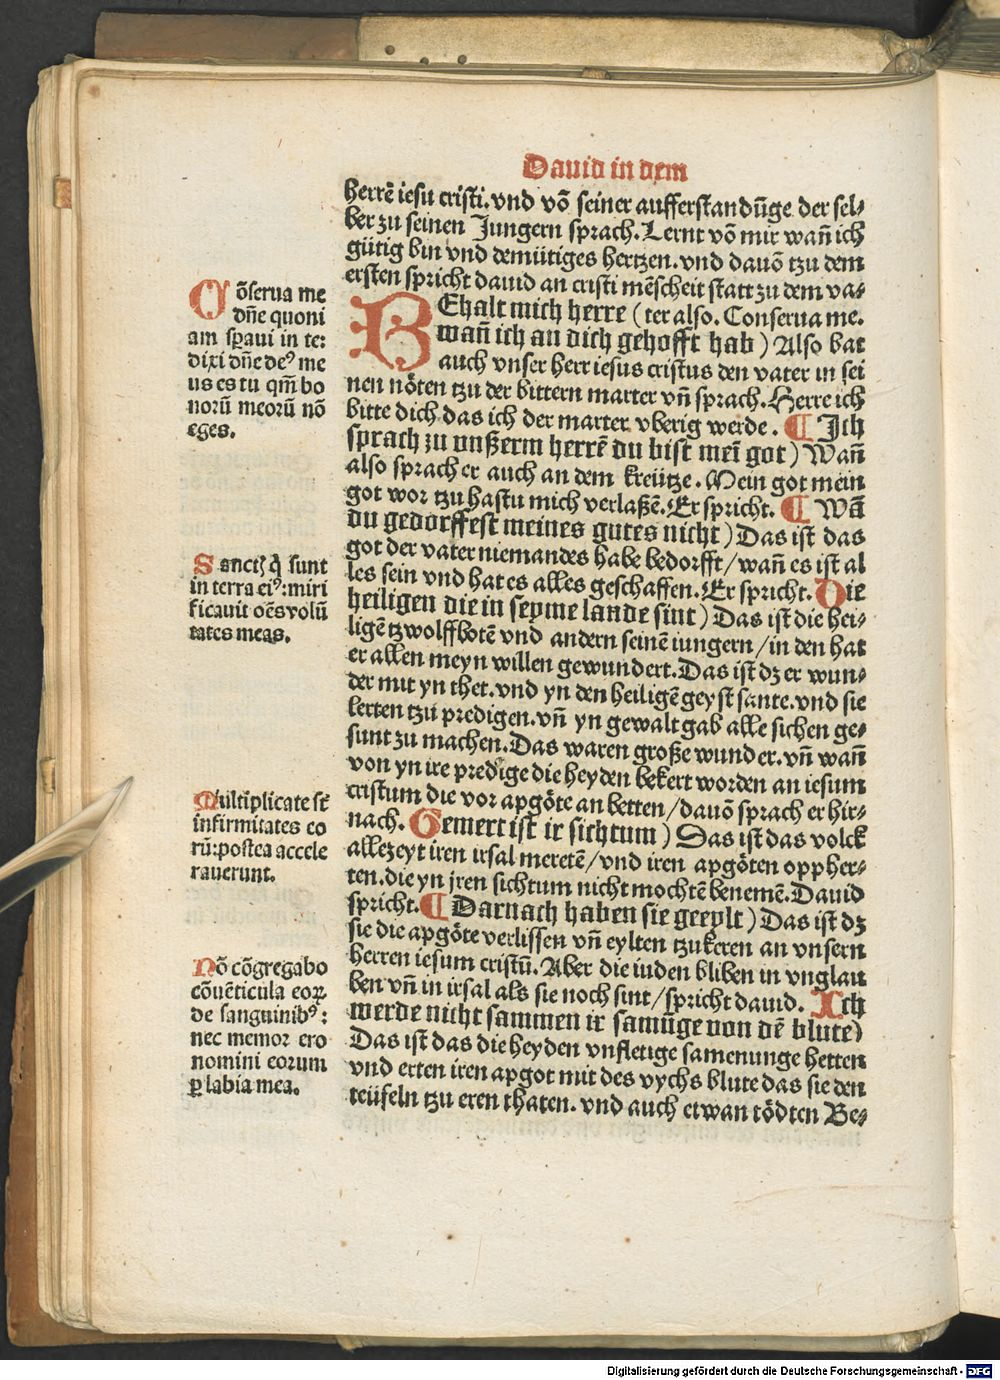 Dauid in dem
herrē iesu cristi. vnd vō seiner aufferstandūge der sel⸗
ber zu seinen Jungern sprach. Lernt vō mir wañ ich
gütig bin vnd demütiges hertzen. vnd dauō tzu dem
ersten spricht dauid an cristi mēscheit statt zu dem va⸗
BEhalt mich herre (ter also. Conserua me.
wañ ich an dich gehofft hab) Also bat
auch vnser herr iesus cristus den vater in sei
nen nöten tzu der bittern marter vñ sprach. Herre ich
bitte dich das ich der marter vberig werde. ¶ Ich
sprach zu vnßerm herrē du bist meī got) Wañ
also sprach er auch an dem kreütze. Mein got mein
got wor tzu hastu mich verlaßē. Er spricht. ¶ Wā
du gedorffest meines gutes nicht) Das ist das
got der vater niemandes habe bedorfft/ wañ es ist al
les sein vnd hat es alles geschaffen. Er spricht. Die
heiligen die in seyme lande sint) Das ist die hei⸗
ligē tzwolffbotē vnd andern seinē iungern/ in den hat
er allen meyn willen gewundert. Das ist dz er wun⸗
der mit yn thet. vnd yn den heiligē geyst sante. vnd sie
lerten tzu predigen. vñ yn gewalt gab alle sichen ge⸗
sunt zu machen. Das waren große wunder. vñ wañ
von yn ire predige die heyden bekert worden an iesum
cristum die vor apgöte an betten/ dauō sprach er hir⸗
nach. Gemert ist ir sichtum) Das ist das volck
allezeyt iren irsal meretē/ vnd iren apgöten oppher⸗
ten. die yn jren sichtum nicht mochtē benemē. Dauid
spricht. ¶ Darnach haben sie geeylt) Das ist dz
sie die apgöte verlissen vñ eylten tzu keren an vnsern
herren iesum cristū. Aber die iuden bliben in vnglau
ben vñ in irsal als sie noch sint/ spricht dauid. Ich
werde nicht sammen ir samūge von dē blute)
Das ist das die heyden vnfletige samenunge hetten
vnd erten iren apgot mit des vychs blute das sie den
teüfeln tzu eren thaten. vnd auch etwan tödten Be⸗
Cōserua me
dñe quoni
am sꝑaui in te:
dixi dñe deꝰ me
us es tu qm̄ bo
norū meorū nō
eges.
Sanctꝭ q̄ sunt
in terra eiꝰ: miri
ficauit oēs volū
tates meas.
Multiplicate sūt
infirmitates eo
rū: postea accele
rauerunt.
Nō cōgregabo
cōuēticula eoꝝ
de sanguinibꝰ:
nec memor ero
nomini eorum
ꝑ labia mea.
Digitalisierung gefördert durch die Deutsche Forschungsgemeinschaft - DFG